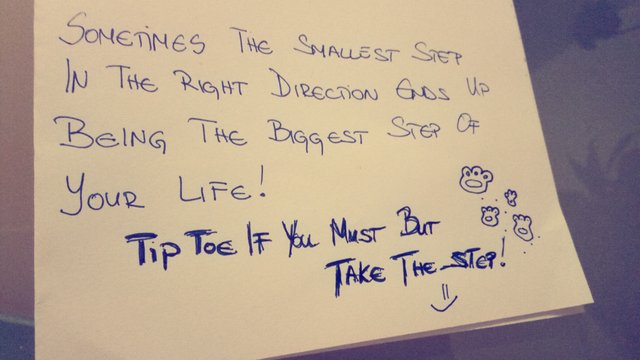 SOMETIMES THE SMALLEST STEP
IN THE RIGHT DIRECTION ENDS UP
BEING THE BIGGEST STEP OF
YOUR LIFE!
TIP TOE IF YOU MUST BUT
TAKE THE STEP!